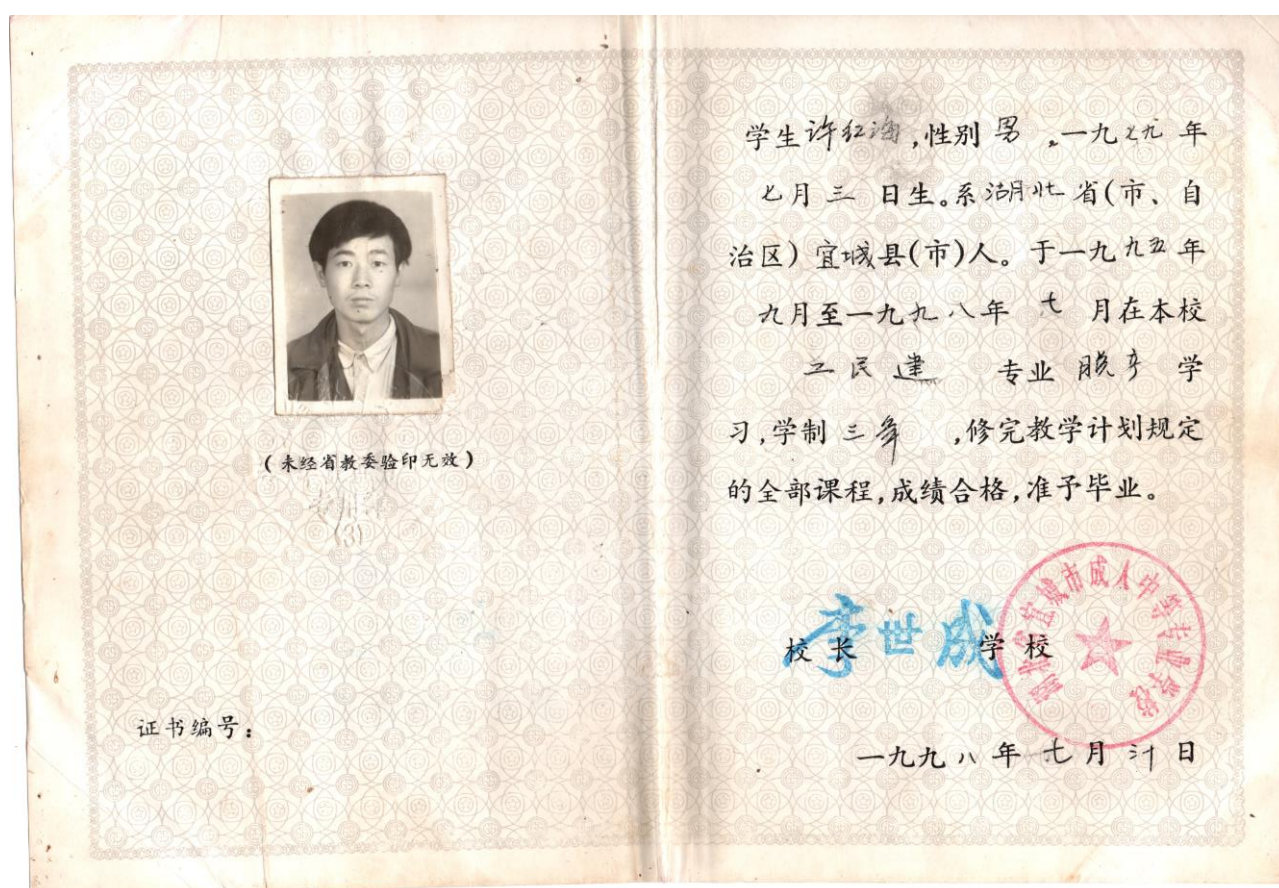 (未经省教委验印无效)
(3)
证书编号:
学生许红海,性别 男 。一九七九 年
七月三 日生。系湖北省(市、自
治区)宜城县(市)人。于一九九五年
九月至一九九八年 七 月在本校
工民建 专业 脱产 学
习,学制 三年 ,修完教学计划规定
的全部课程,成绩合格,准予毕业。
湖北省宜城市成人中等专业学校
校长 李世成 学校
一九九八年 七月 卅日